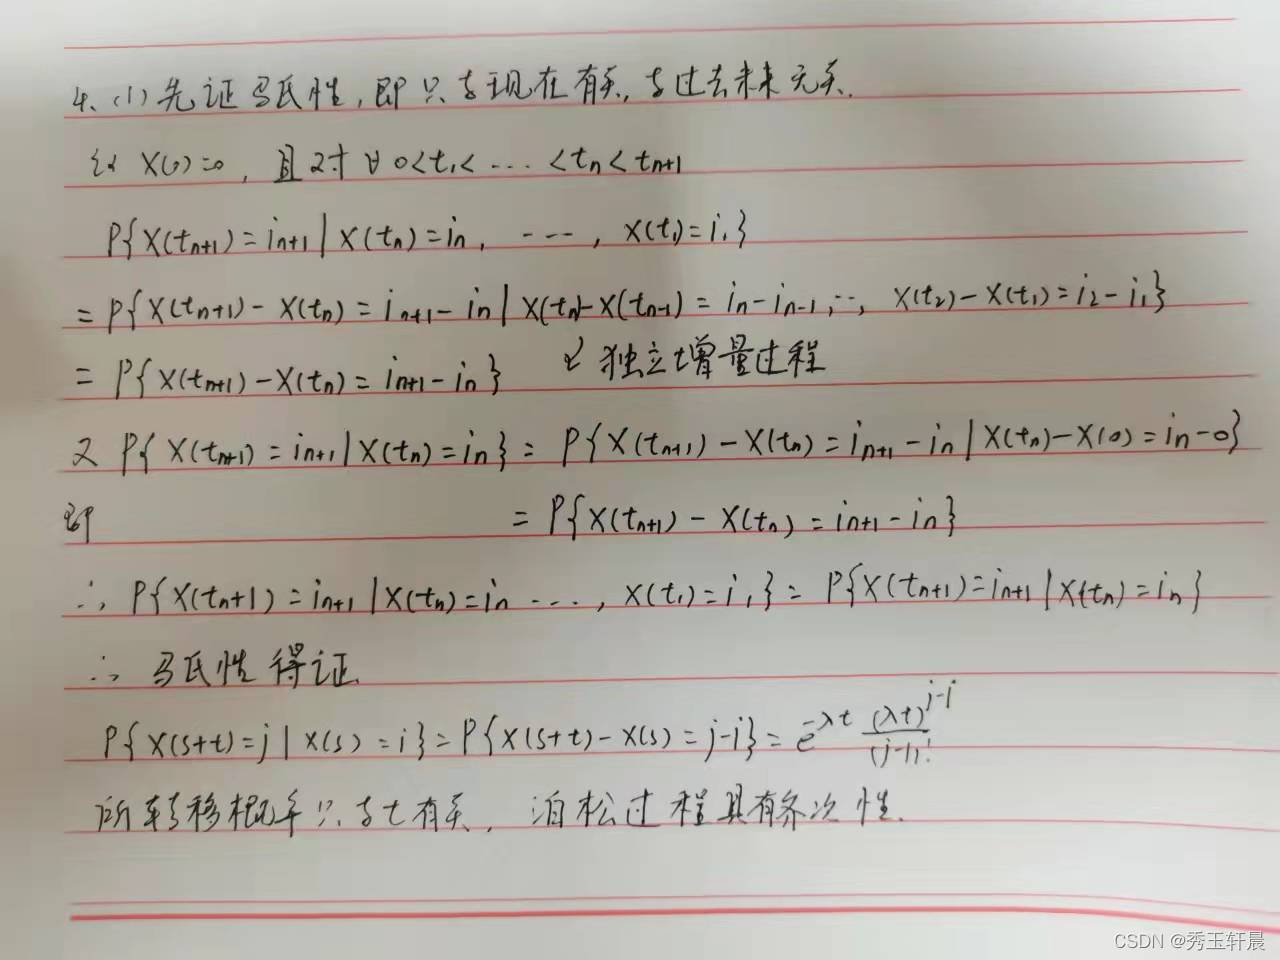 4、(1) 先证马氏性，即只与现在有关，与过去未来无关.
X(0)=0，且对∀0<t₁<…<tₙ<tₙ₊₁
P{X(tₙ₊₁)=iₙ₊₁|X(tₙ)=iₙ，…，X(t₁)=i₁}
=P{X(tₙ₊₁)-X(tₙ)=iₙ₊₁-iₙ|X(tₙ)-X(tₙ₋₁)=iₙ-iₙ₋₁,…, X(t₂)-X(t₁)=i₂-i₁}
=P{X(tₙ₊₁)-X(tₙ)=iₙ₊₁-iₙ} 独立增量过程
又 P{X(tₙ₊₁)=iₙ₊₁|X(tₙ)=iₙ}=P{X(tₙ₊₁)-X(tₙ)=iₙ₊₁-iₙ|X(tₙ)-X(0)=iₙ-0}
即 =P{X(tₙ₊₁)-X(tₙ)=iₙ₊₁-iₙ}
∴ P{X(tn+1)=iₙ₊₁|X(tₙ)=iₙ …，X(t₁)=i₁}=P{X(tₙ₊₁)=iₙ₊₁|X(tₙ)=iₙ}
∴ 马氏性得证
P{X(s+t)=j|X(s)=i}=P{X(s+t)-X(s)=j-i}=e^{-λt} (λt)^{j-i}/(j-i)!
所转移概率只与t有关，泊松过程具有齐次性.
CSDN @秀玉轩晨